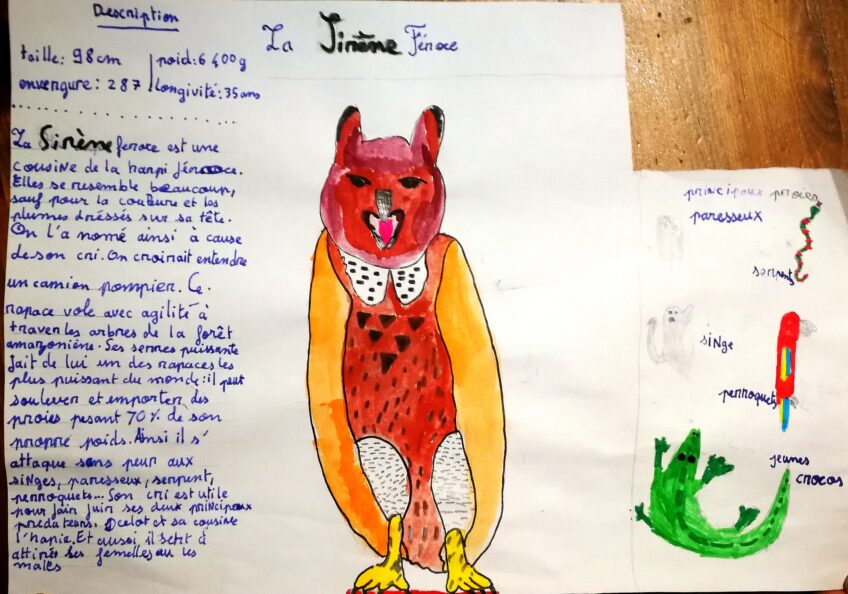 Description
taille: 98cm
poid: 6 400g
envergure: 287
longivité: 35 ans
La Sirène Féroce
La Sirène feroce est une
cousine de la harpi féroce.
Elles se resemble beaucoup,
sauf pour la couleure et les
plumes dréssés sur sa tête.
On l'a nomé ainsi à cause
de son cri. On croirait entendre
un camion pompier. Ce
rapace vole avec agilité à
traver les arbres de la forêt
amazonière. Ses serres puissante
fait de lui un des rapaces les
plus puissant du monde: il peut
soulever et emporter des
proies pesant 70% de son
propre poids. Ainsi il s'
attaque sans peur aux
singes, paresseux, serpent,
perroquets... Son cri est utile
pour fair fuir ses deux principaux
prédateurs. Ocelot et sa cousine
l'hapie. Et aussi il sert à
attirés les femelles ou les
males
principaux proies
paresseux
serpents
singe
perroquets
jeunes
crocos